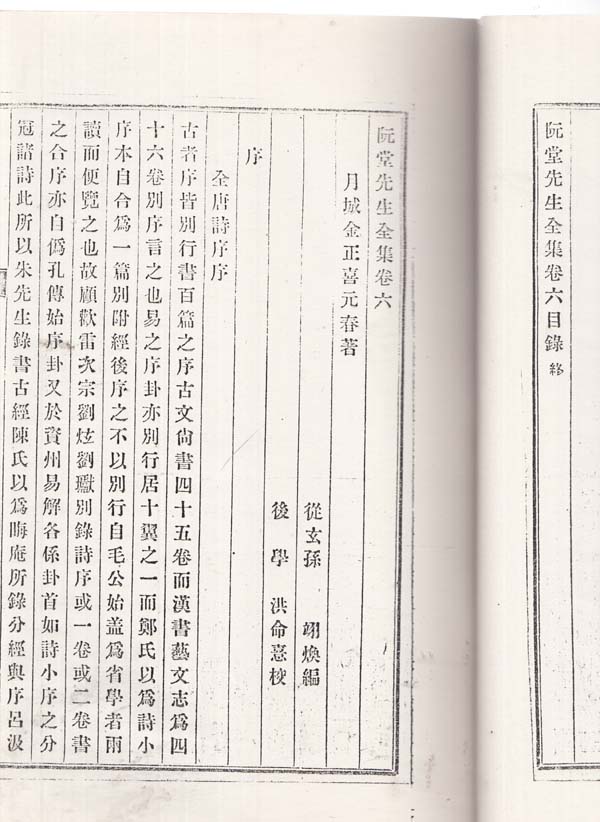 阮堂先生全集卷六目錄 終
阮堂先生全集卷六
月城金正喜元春著
從玄孫 翊煥編
後學 洪命憙校
序
全唐詩序序
古者序皆別行書百篇之序古文尙書四十五卷而漢書藝文志爲四
十六卷別序言之也易之序卦亦別行居十翼之一而鄭氏以爲詩小
序本自合爲一篇別附經後序之不以別行自毛公始盖爲省學者兩
讀而便覽之也故顧歡雷次宗劉炫劉瓛別錄詩序或一卷或二卷書
之合序亦自僞孔傳始序卦又於資州易解各係卦首如詩小序之分
冠諸詩此所以朱先生錄書古經陳氏以爲晦庵所錄分經與序呂汲